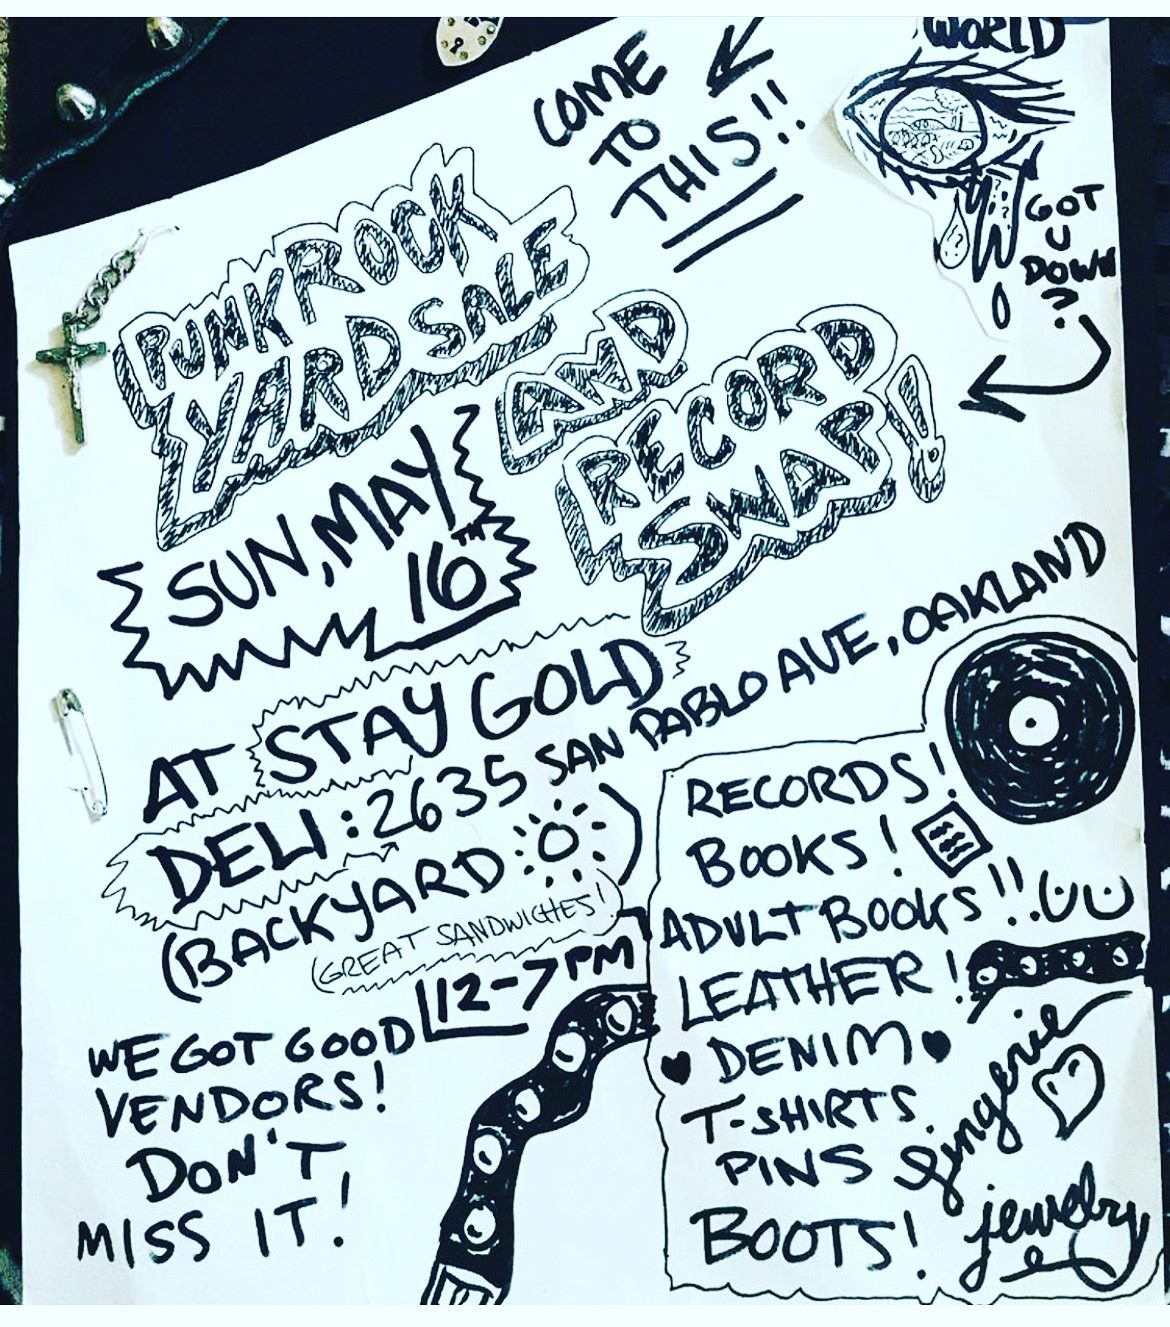 WORLD
GOT
U
DOWN
?
COME
TO
THIS!!
PUNK ROCK
YARD SALE
AND
RECORD
SWAP!
SUN, MAY
16TH
AT STAY GOLD
DELI: 2635 SAN PABLO AVE, OAKLAND
(BACKYARD)
(GREAT SANDWICHES!
12-7PM
WE GOT GOOD
VENDORS!
DON'T
MISS IT!
RECORDS!
BOOKS!
ADULT BOOKS!!
LEATHER!
DENIM
T-SHIRTS
PINS
BOOTS!
lingerie
jewelry